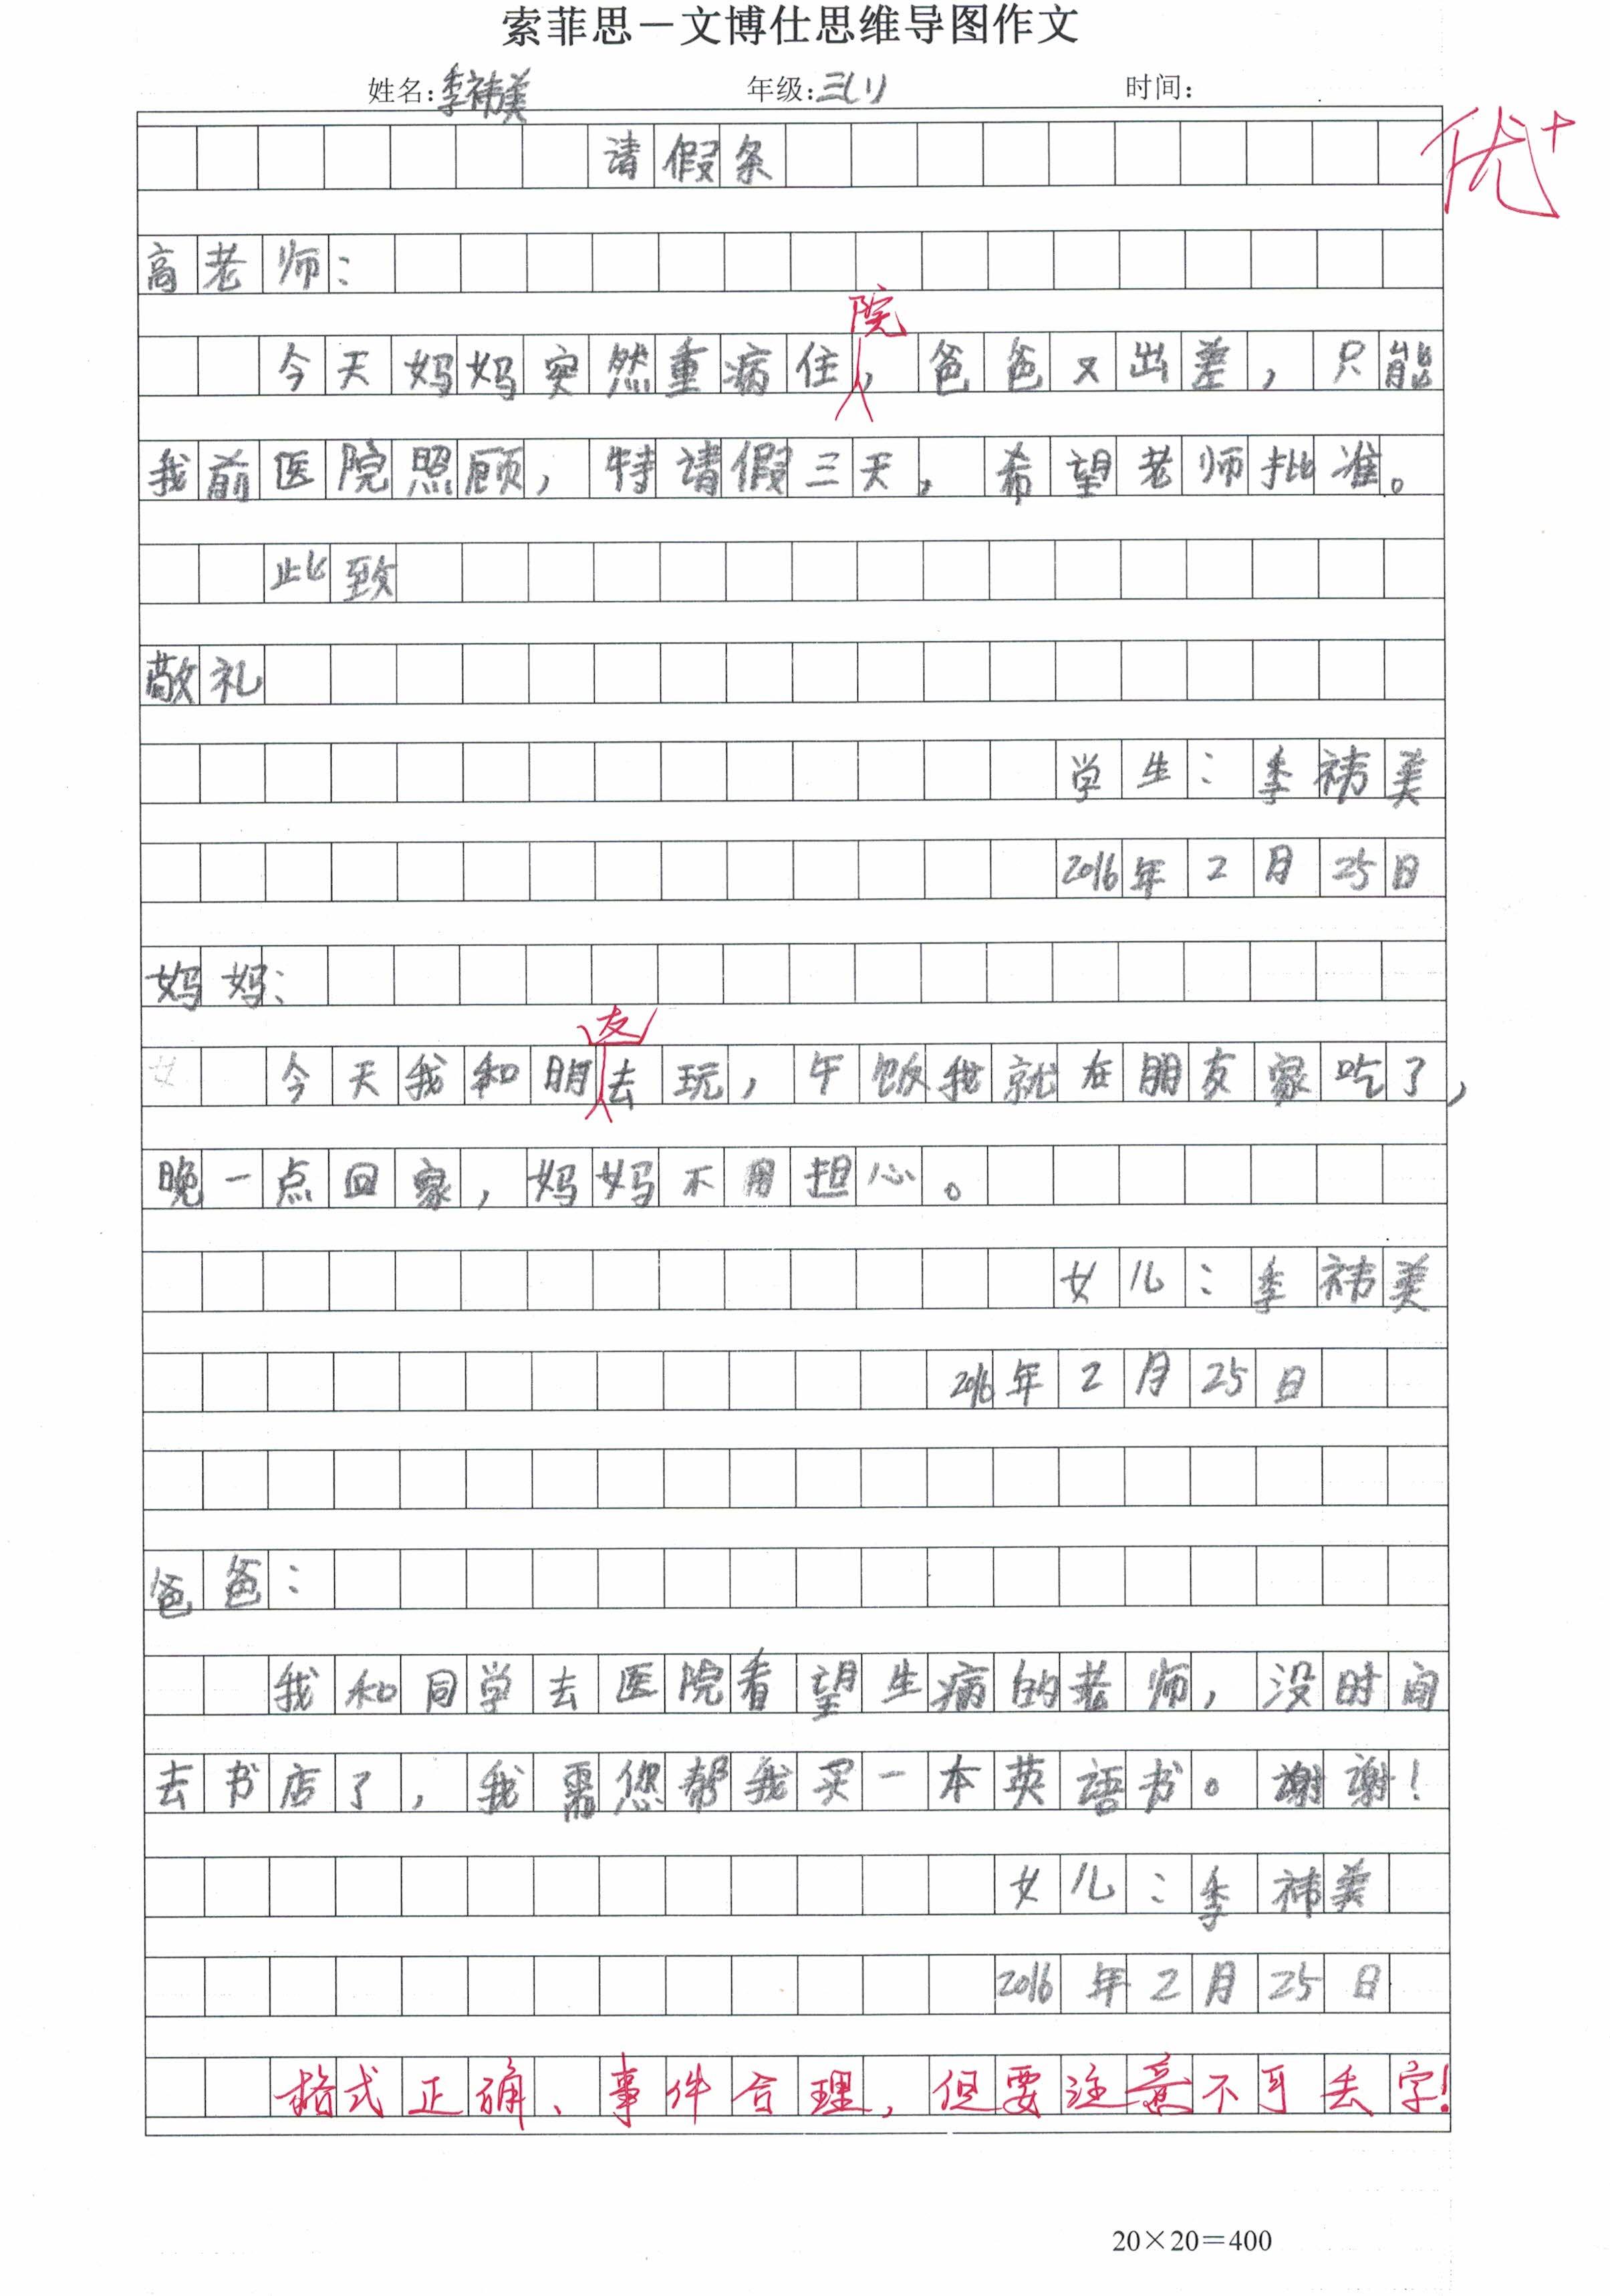 索菲思—文博仕思维导图作文
姓名：李祎美 年级：三(1) 时间：
请假条
优+
高老师：
今天妈妈突然重病住院，爸爸又出差，只能
我前医院照顾，特请假三天，希望老师批准。
此致
敬礼
学生：李祎美
2016年2月25日
妈妈：
今天我和朋友去玩，午饭我就在朋友家吃了，
晚一点回家，妈妈不用担心。
女儿：李祎美
2016年2月25日
爸爸：
我和同学去医院看望生病的老师，没时间
去书店了，我需您帮我买一本英语书。谢谢！
女儿：李祎美
2016年2月25日
格式正确、事件合理，但要注意不可丢字！
20×20＝400